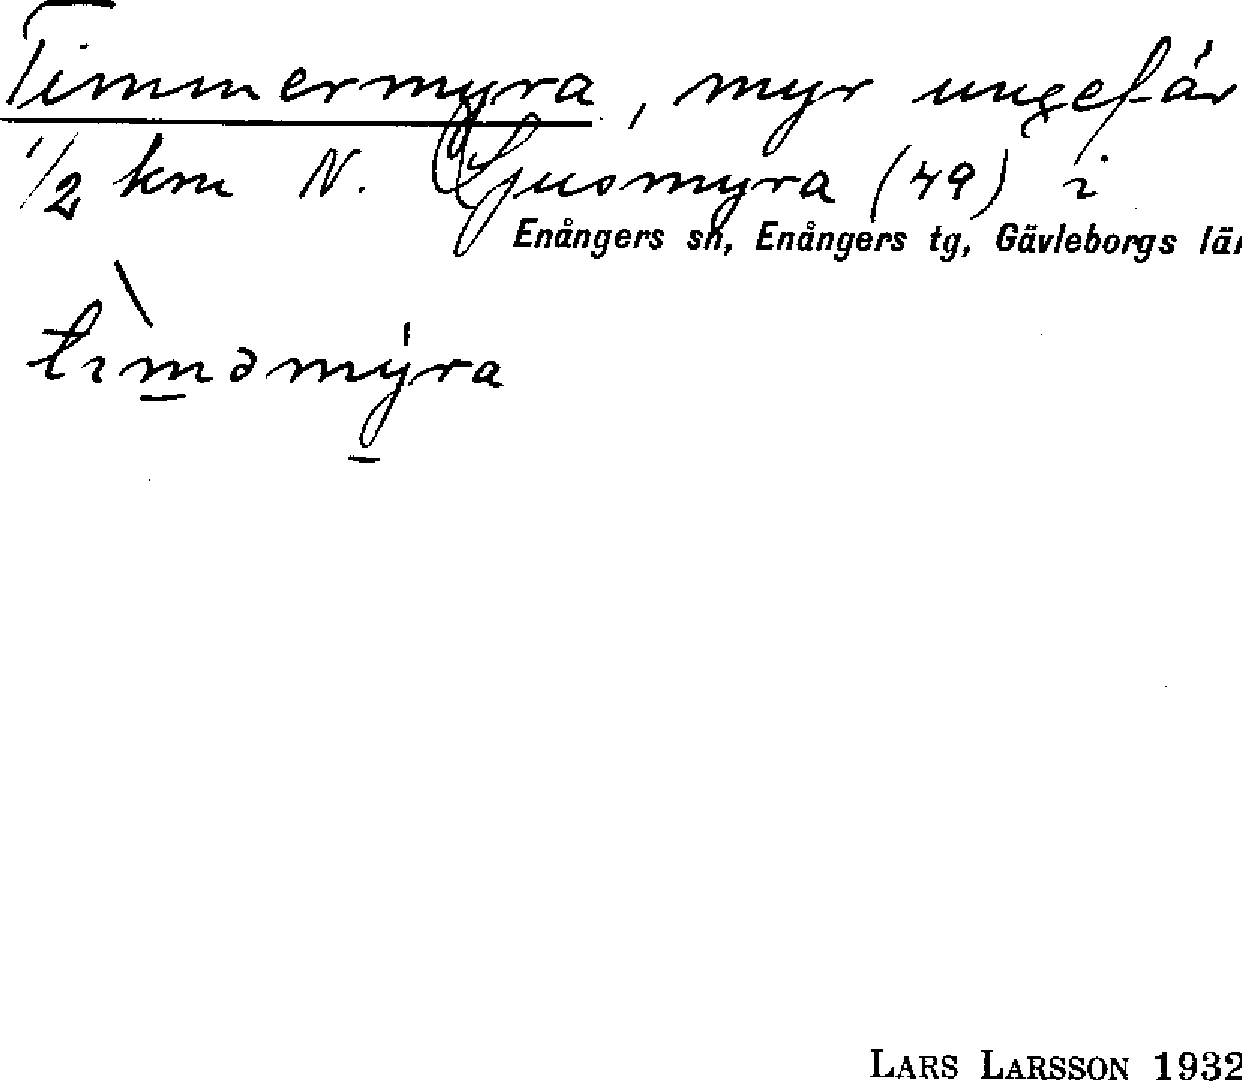 Timmermyra, myr ungefär
1/2 km N. Ljusmyra (49) i
Enångers sn, Enångers tg, Gävleborgs län
tìməmýra
LARS LARSSON 1932